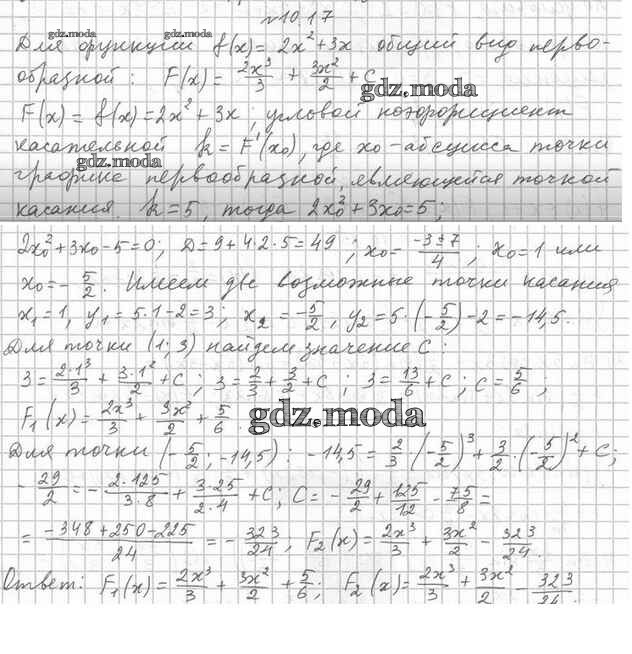 №10.17
gdz.moda
Для функции f(x) = 2x² + 3x общий вид перво-
образной: F(x) = 2x³/3 + 3x²/2 + C
gdz.moda
F(x) = f(x) = 2x² + 3x; угловой коэффициент
касательной k = F'(x₀), где x₀ - абсцисса точки
gdz.moda
графика первообразной, являющейся точкой
касания. k = 5, тогда 2x₀² + 3x₀ = 5;
2x₀² + 3x₀ - 5 = 0; D = 9 + 4·2·5 = 49; x₀ = (-3±7)/4; x₀ = 1 или
x₀ = -5/2. Имеем две возможные точки касания
x₁ = 1, y₁ = 5·1 - 2 = 3; x₂ = -5/2, y₂ = 5·(-5/2) - 2 = -14,5.
Для точки (1; 3) найдем значение C:
3 = 2·1³/3 + 3·1²/2 + C; 3 = 2/3 + 3/2 + C; 3 = 13/6 + C; C = 5/6,
F₁(x) = 2x³/3 + 3x²/2 + 5/6
gdz.moda
Для точки (-5/2; -14,5): -14,5 = 2/3·(-5/2)³ + 3/2·(-5/2)² + C;
-29/2 = -2·125/3·8 + 3·25/2·4 + C; C = -29/2 + 125/12 - 75/8 =
= (-348+250-225)/24 = -323/24; F₂(x) = 2x³/3 + 3x²/2 - 323/24.
Ответ: F₁(x) = 2x³/3 + 3x²/2 + 5/6; F₂(x) = 2x³/3 + 3x²/2 - 323/24.